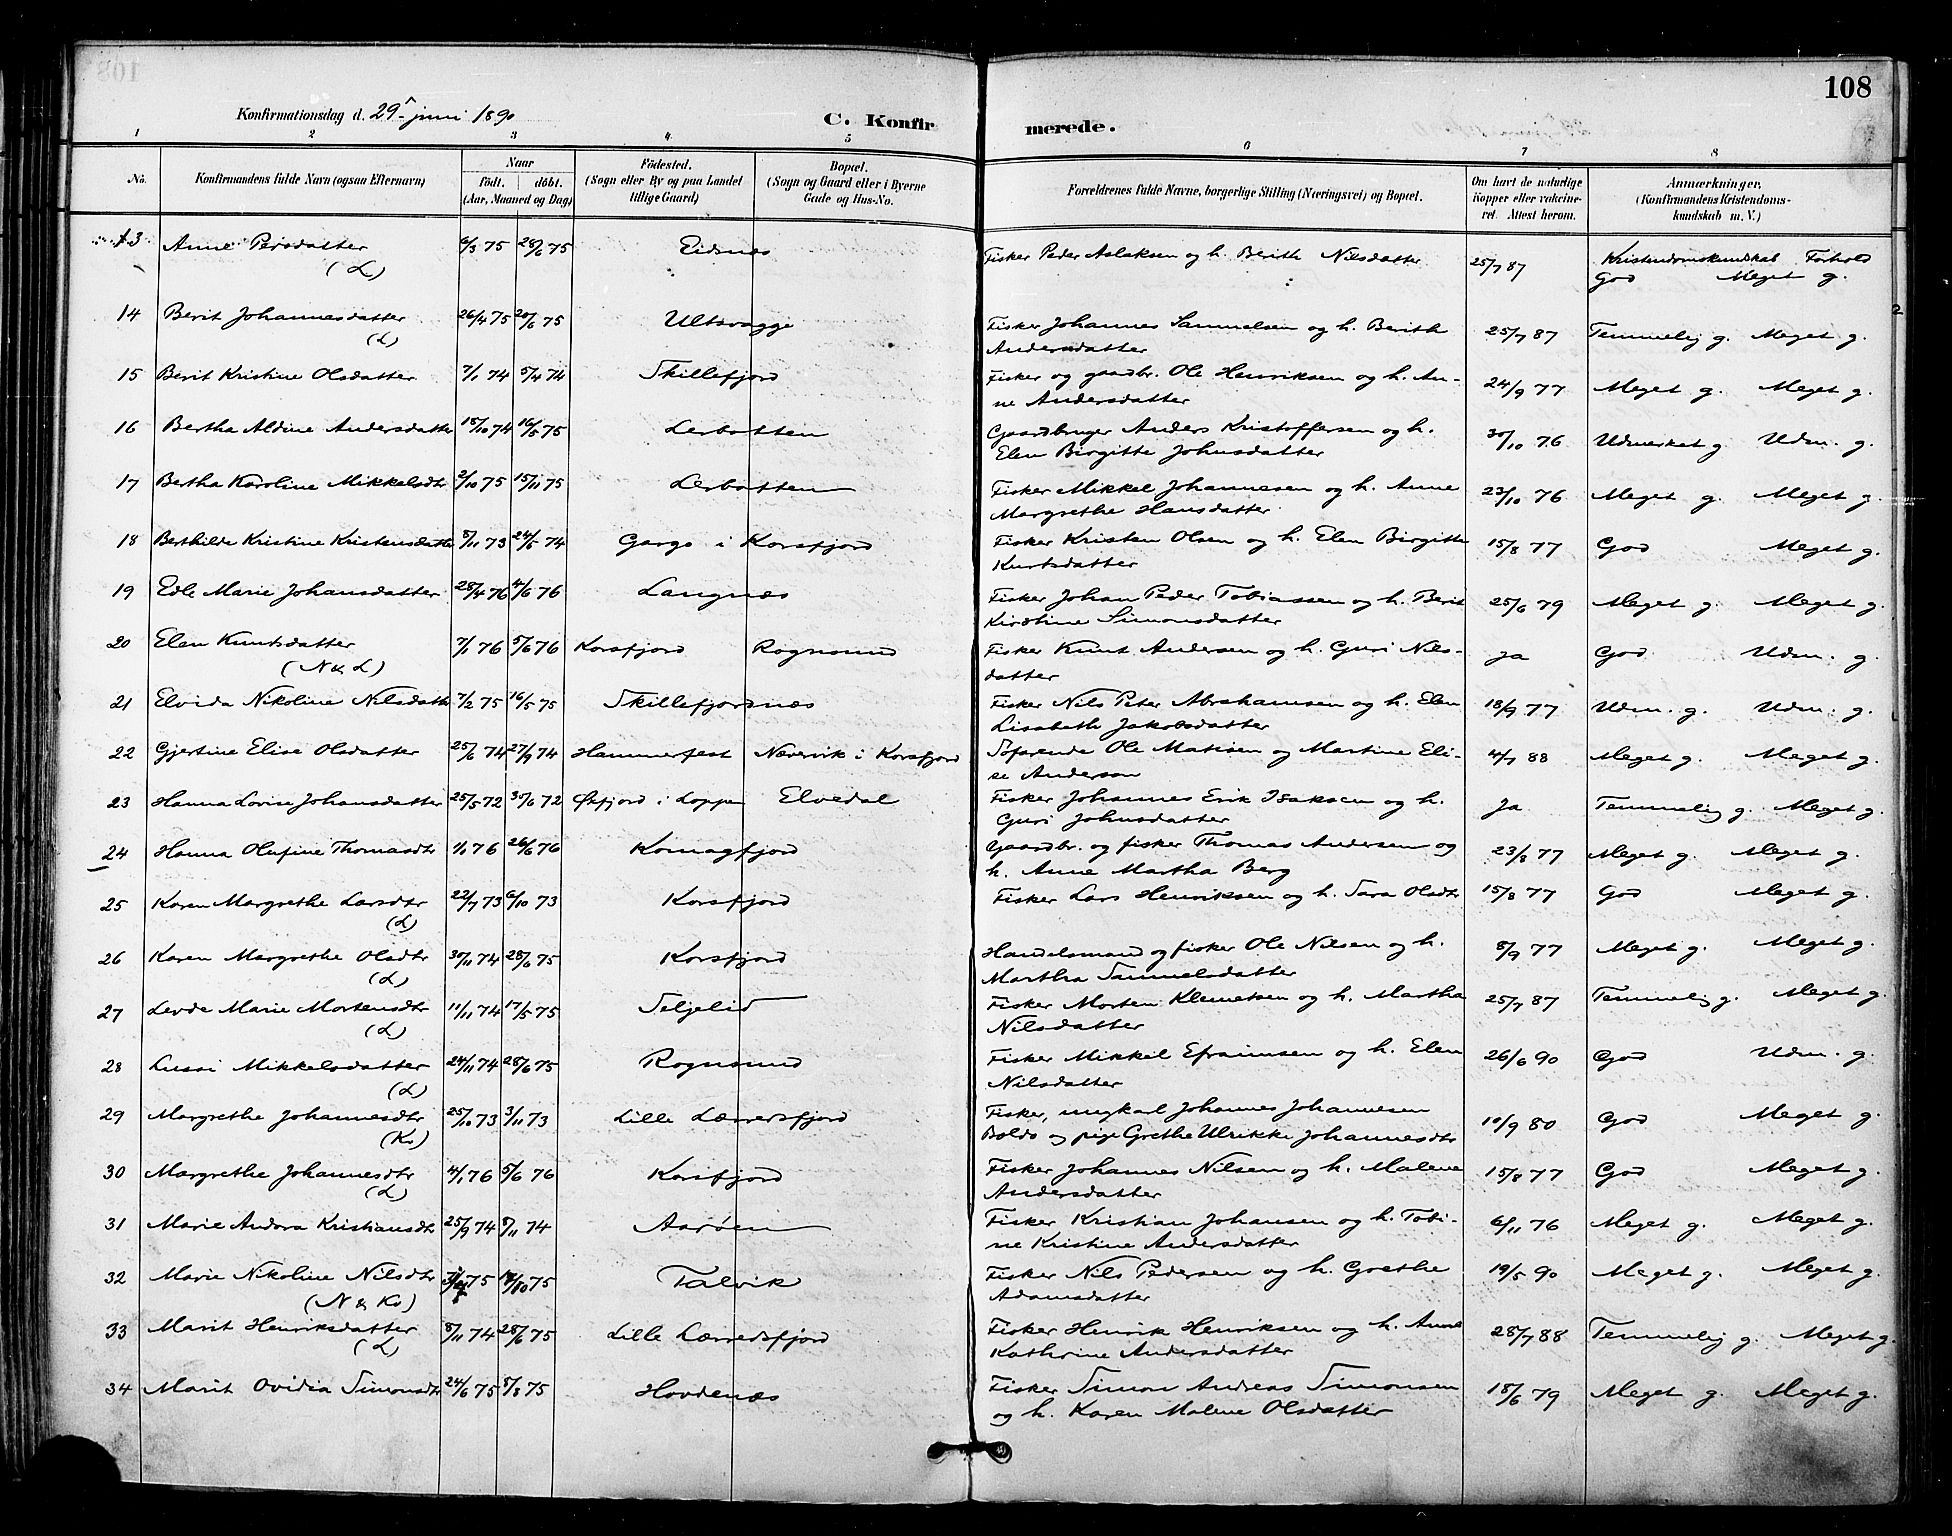 108
Konfirmationsdag d. 29 juni 1890
C. Konfirmerede.
1 2 3 4 5 6 7 8
No. Konfirmandens fulde Navn (ogsaa Efternavn) Naar födt. döbt. (Aar, Maaned og Dag) Födested. (Sogn eller By og paa Landet tillige Gaard) Bopæl. (Sogn og Gaard eller i Byerne Gade og Hus-No. Forældrenes fulde Navne, borgerlige Stilling (Næringsvei) og Bopæl. Om havt de naturlige Kopper eller vaccineret. Attest herom. Anmærkninger. (Konfirmandens Kristendomskundskab m. V.)
13 Anne Persdatter 6/3 75 28/6 75 Eidsnæs Fisker Peder Aslaksen og h. Berith Nilsdatter 25/7 87 Kristendomskundskab Forhold
(L) God Meget g.
14 Berit Johannesdatter 26/4 75 20/6 75 Ultsvagge Fisker Johannes Samuelsen og h. Berith 25/7 87 Temmelig g. Meget g.
(L) Andersdatter
15 Berit Kristine Olsdatter 7/1 74 5/4 74 Skillefjord Fisker og gaardbr. Ole Henriksen og h. An- 24/9 77 Meget g. Meget g.
ne Andersdatter
16 Bertha Aldine Andersdatter 18/10 74 16/5 75 Lerbotten Gaardbruger Anders Kristoffersen og h. 30/10 76 Udmerket g. Udm. g.
Elen Birgitte Johnsdatter
17 Bertha Karoline Mikkelsdtr 2/10 75 15/11 75 Lerbotten Fisker Mikkel Johannesen og h. Anne 23/10 76 Meget g. Meget g.
Margrethe Hansdatter
18 Berthilde Kristine Kristensdatter 8/11 73 24/5 74 Gargo i Korsfjord Fisker Kristen Olsen og h. Elen Birgitte 15/8 77 God Meget g.
Kurtsdatter
19 Edle Marie Johansdatter 28/4 76 4/6 76 Langnæs Fisker Johan Peder Tobiassen og h. Berit 25/6 79 Meget g. Meget g.
Kirstine Simonsdatter
20 Elen Knutsdatter 7/1 76 5/6 76 Korsfjord Rognsund Fisker Knut Andersen og h. Guri Nils- ja God Udm. g.
(N & L) datter
21 Elvida Nikoline Nilsdatt 7/2 75 16/5 75 Skillefjordnæs Fisker Nils Peter Abrahamsen og h. Elen 18/9 77 Udm. g. Udm. g.
Lisabeth Jakobsdatter
22 Gjertine Elise Olsdatter 25/6 74 27/9 74 Hammerfest Nævervik i Korsfjord Søfarende Ole Matisen og Martine Eli- 4/7 88 Meget g. Meget g.
se Anderson
23 Hanna Lovise Johansdatter 25/5 72 30/6 72 Øxfjord i Loppen Elvedal Fisker Johannes Erik Isaksen og h. Ja Temmelig g. Meget g.
Guri Johnsdatter
24 Hanna Olufine Thomasdtr 1/1 76 26/6 76 Komagfjord Gaardbr. og fisker Thomas Andersen og 23/8 77 Meget g. Meget g.
h. Anne Martha Berg
25 Karen Margrethe Larsdtr 22/7 73 6/10 73 Korsfjord Fisker Lars Henriksen og h. Sara Olsdtr 15/8 77 God Meget g.
(L)
26 Karen Margrethe Olsdtr 30/11 74 28/6 75 Korsfjord Handelsmand og fisker Ole Nilsen og h. 8/9 77 Meget g. Meget g.
(L) Martha Samuelsdatter
27 Levde Marie Mortensdtr 11/11 74 17/5 75 Seljelid Fisker Morten Klemetsen og h. Martha 25/7 87 Temmelig g. Meget g.
(L) Nilsdatter
28 Lussi Mikkelsdatter 24/11 74 28/6 75 Rognsund Fisker Mikkel Efraimsen og h. Elen 26/6 90 God Udm. g.
(L) Nilsdatter
29 Margrethe Johannesdtr 25/10 73 3/11 73 Lille Lærredsfjord Fisker, ungkarl Johannes Johannesen 10/9 80 God Meget g.
(Kv) Bolds og pige Grethe Ulrikke Johannesdtr
30 Margrethe Johannesdtr 4/1 76 5/6 76 Korsfjord Fisker Johannes Nilsen og h. Malene 15/8 77 God Meget g.
(L) Andersdatter
31 Marie Andora Kristiansdtr 25/9 74 8/11 74 Aarøen Fisker Kristian Johansen og h. Tobi- 6/11 76 Meget g. Meget g.
ne Kristine Andersdatter
32 Marie Nikoline Nilsdtr 75 75 Talvik Fisker Nils Pedersen og h. Grethe 19/5 90 Meget g. Meget g.
(N & Kv) Adamsdatter
33 Marit Henriksdatter 8/11 74 28/6 75 Lille Lærredsfjord Fisker Henrik Henriksen og h. Anne 28/7 88 Temmelig g. Meget g.
(L) Kathrine Andersdatter
34 Marit Ovidia Simonsdtr 24/6 75 8/8 75 Hovdenæs Fisker Simon Andreas Simonsen 18/6 79 Meget g. Meget g.
og h. Karen Malene Olsdatter